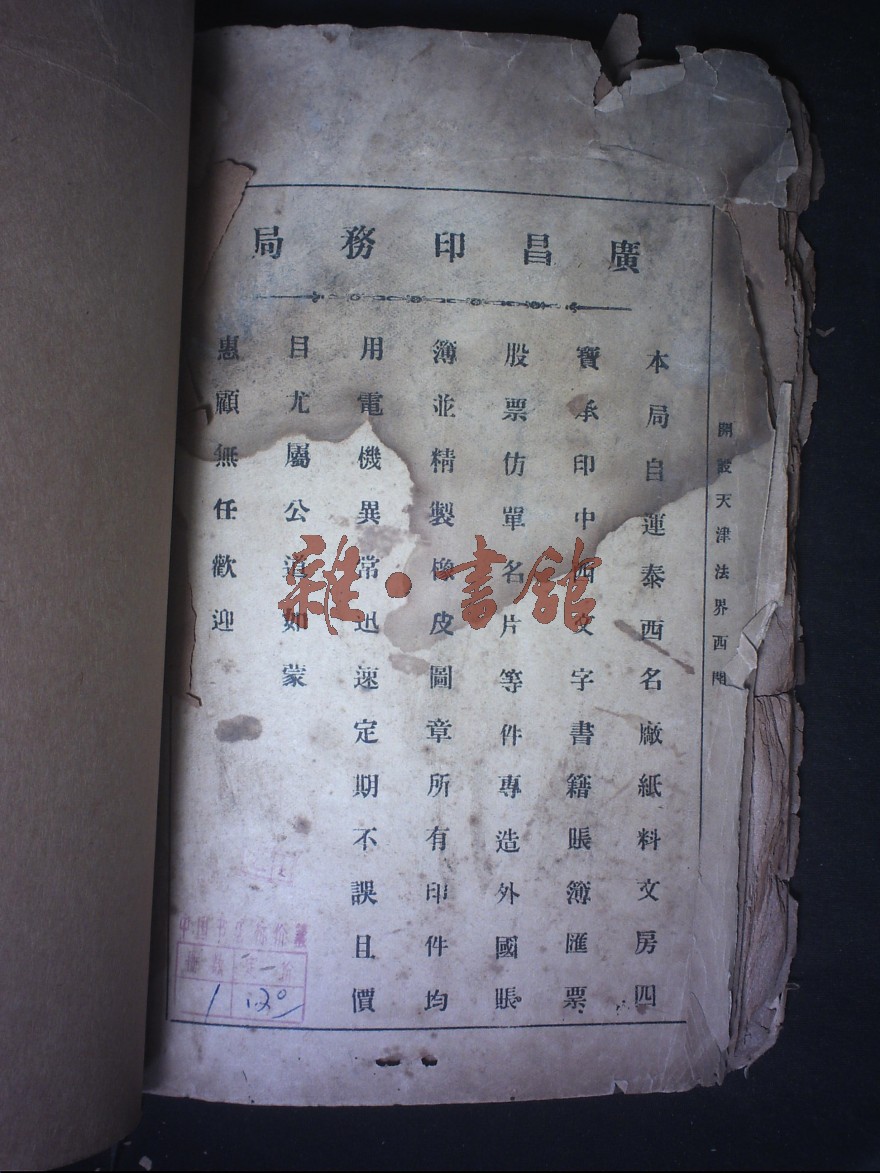 廣昌印務局
本局自運泰西名廠紙料文房四
寶承印中西文字書籍賬簿匯票
股票仿單名片等件專造外國賬
簿並精製橡皮圖章所有印件均
用電機異常迅速定期不誤且價
目尤屬公道如蒙
惠顧無任歡迎
開設天津法界西開
雜·書館
中国书店标价籤
册数
1 1.20